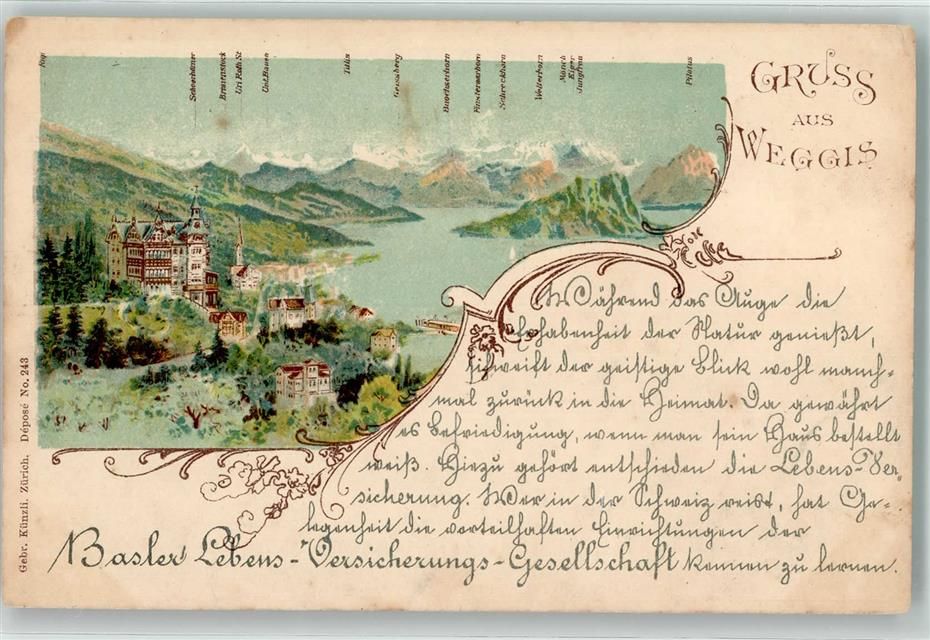 Rigi
Schreckhörner
Bristenstock
Uri Roth St
Titlis
Pilatus
Wetterhorn
Mönch
Eiger
Jungfrau
Schreckhorn
Finsteraarhorn
GRUSS
AUS
WEGGIS
Während das Auge die
Erhabenheit der Natur genießt,
schweift der geistige Blick wohl manch-
mal zurück in die Heimat. Da gewährt
es Befriedigung, wenn man sein Haus bestellt
weiß. Hiezu gehört entschieden die Lebens-Ver-
sicherung. Wer in der Schweiz reist, hat Ge-
legenheit die vorteilhaften Einrichtungen der
Basler Lebens-Versicherungs-Gesellschaft kennen zu lernen.
Gebr. Künzli. Zürich. Déposé No. 243